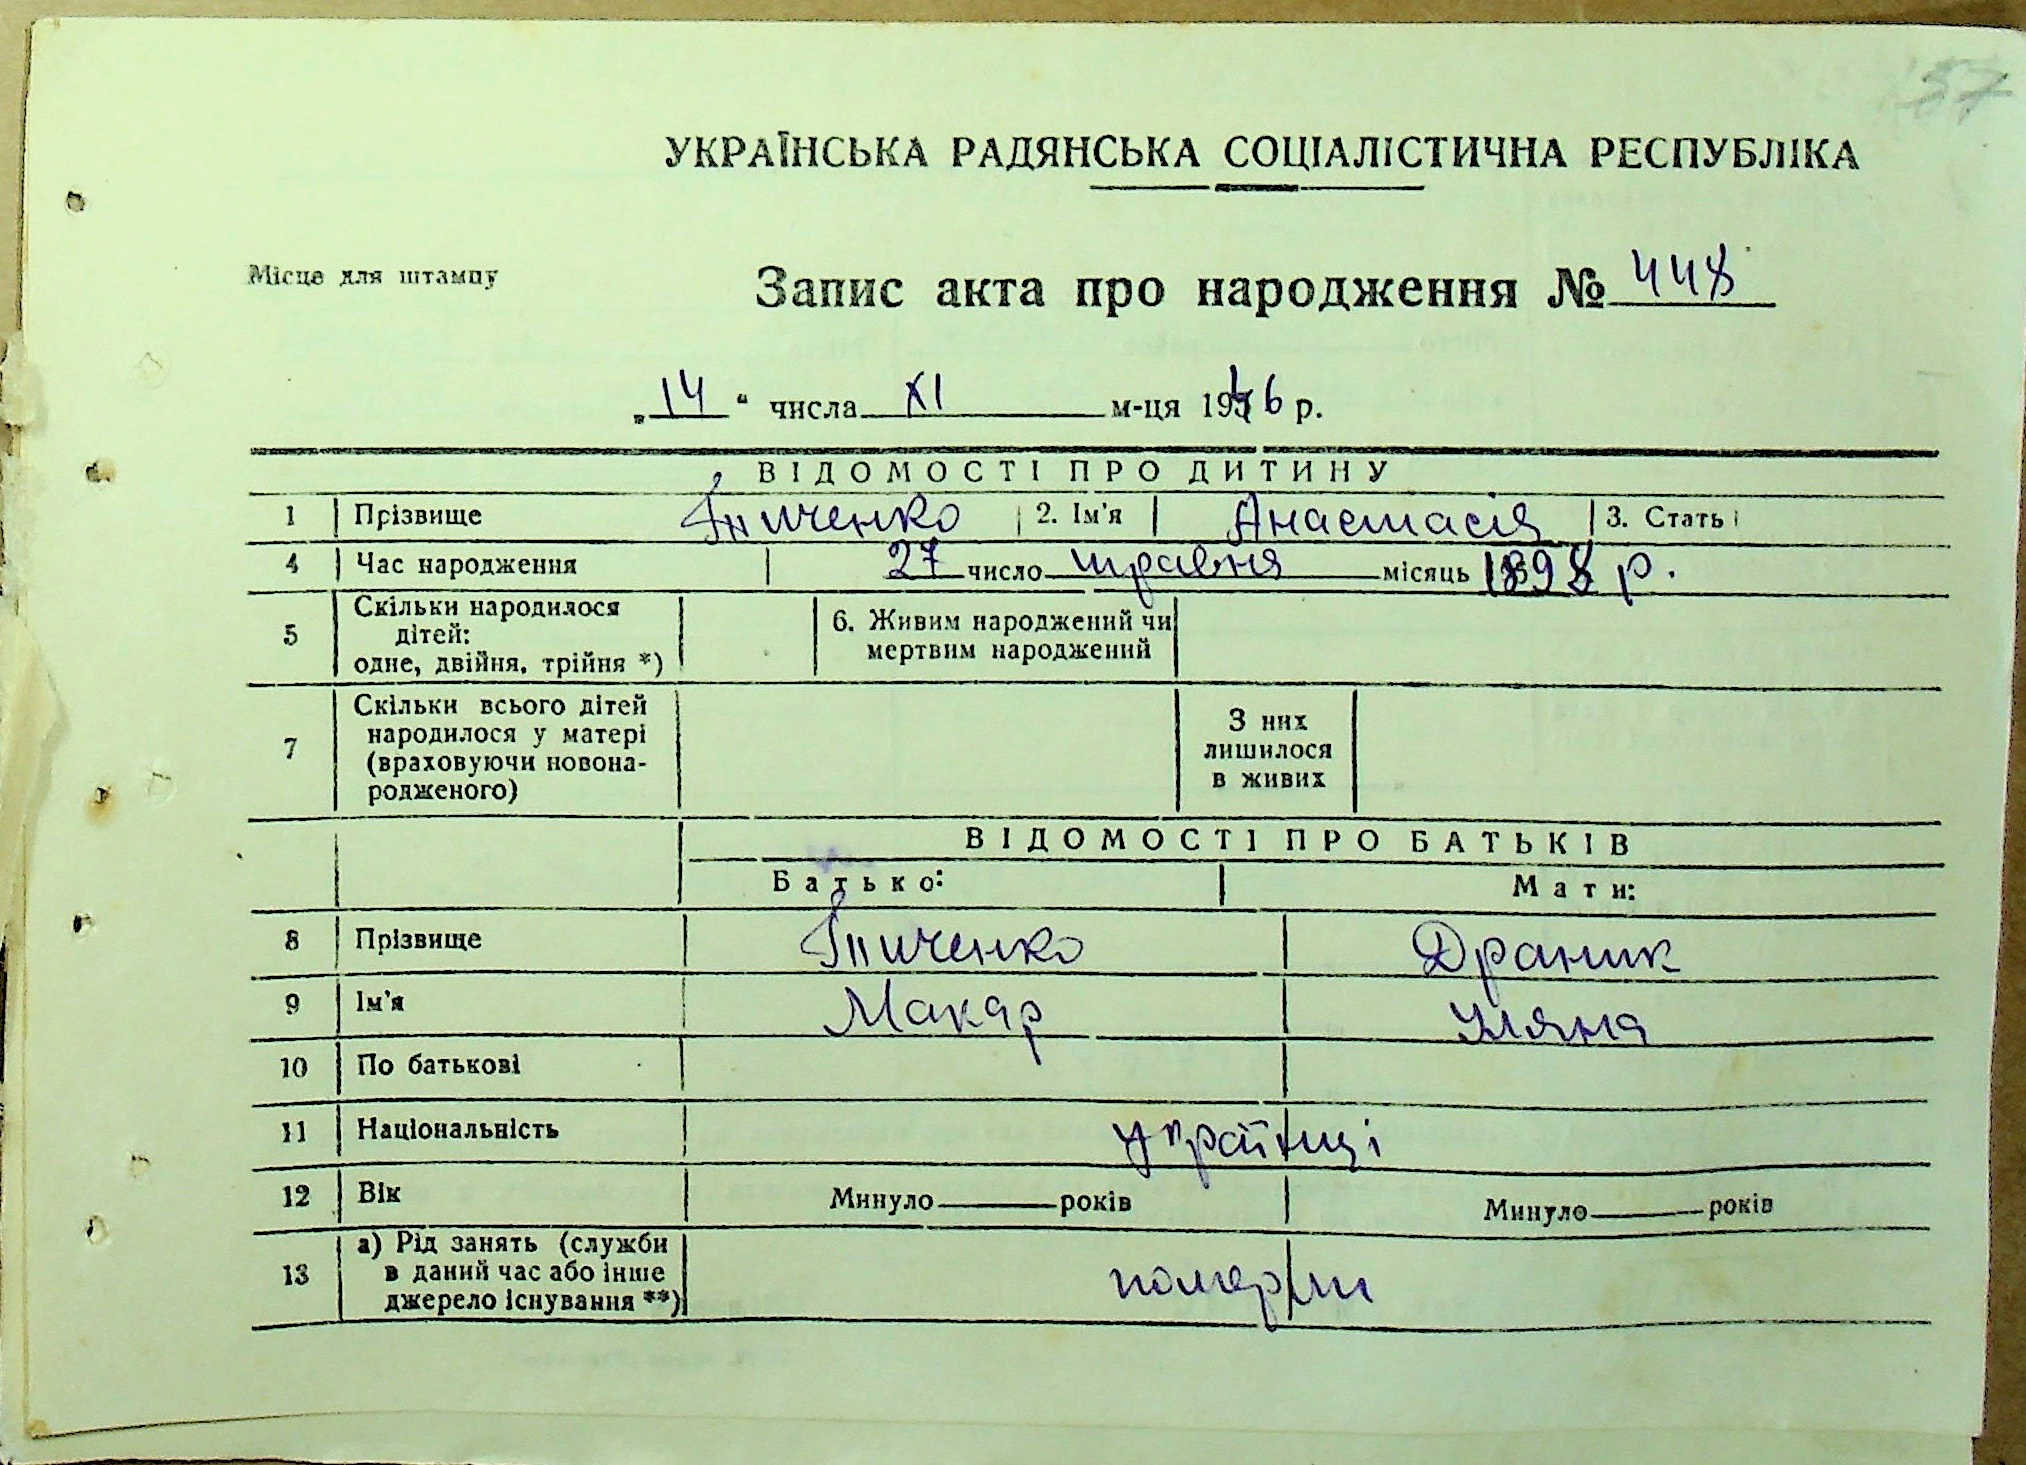 157
УКРАЇНСЬКА РАДЯНСЬКА СОЦІАЛІСТИЧНА РЕСПУБЛІКА
Місце для штампу
Запис акта про народження № 448
„14“ числа XI м-ця 1946 р.
ВІДОМОСТІ ПРО ДИТИНУ
1 Прізвище Іпиченко 2. Ім'я Анастасія 3. Стать
4 Час народження 27 число травня місяць 1898 р.
5 Скільки народилося дітей: одне, двійня, трійня *) 6. Живим народжений чи мертвим народжений
7 Скільки всього дітей народилося у матері (враховуючи новона-родженого) З них лишилося в живих
ВІДОМОСТІ ПРО БАТЬКІВ
Батько: Мати:
8 Прізвище Іпиченко Драник
9 Ім'я Макар Уляна
10 По батькові
11 Національність українці
12 Вік Минуло років Минуло років
13 а) Рід занять (служби в даний час або інше джерело існування **) померли